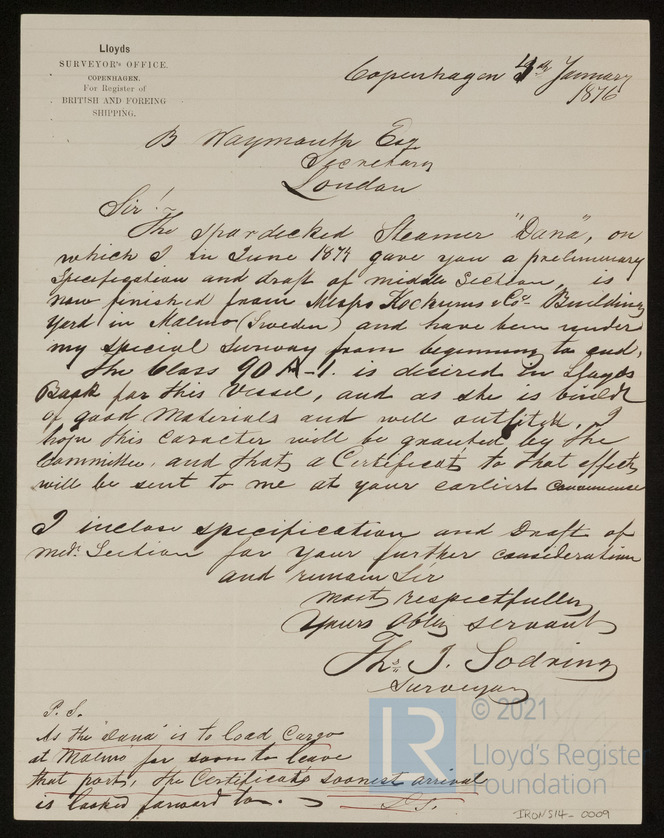 Lloyds
SURVEYOR'S OFFICE.
COPENHAGEN.
For Register of
BRITISH AND FOREING
SHIPPING.
Copenhagen January
1876
B Waymouth Esq
Secretary
London
Sir!~
The spardecked Steamer "Dana", on
which I in June 1874 gave you a preliminary
Specifigation and draft of middle Section, is
now finished from Messrs Kockums & Co. Building
Yard in Malmo (Sweden) and have been under
my special Survay from beginning to end,
The Class 90 A-1. is desired in Lloyds
Book for this Vessel, and as she is build
of good Materials and well outfitted, I
hope this caracter will be granted by the
Committee, and that a Certificat to that effect
will be sent to me at your earliest convenience
I inclose specification and Draft of
mid: Section for your further consideration
and remain Sir
most respectfully
Yours obly servant
Ths: J. Sodring
Surveyor
P.S.
As the "Dana" is to load Cargo
at Malmo for soon to leave
that port, the Certificats soonest arrival
is looked forward to.
© 2021
LR
Lloyd's Register
Foundation
IRON514-0009